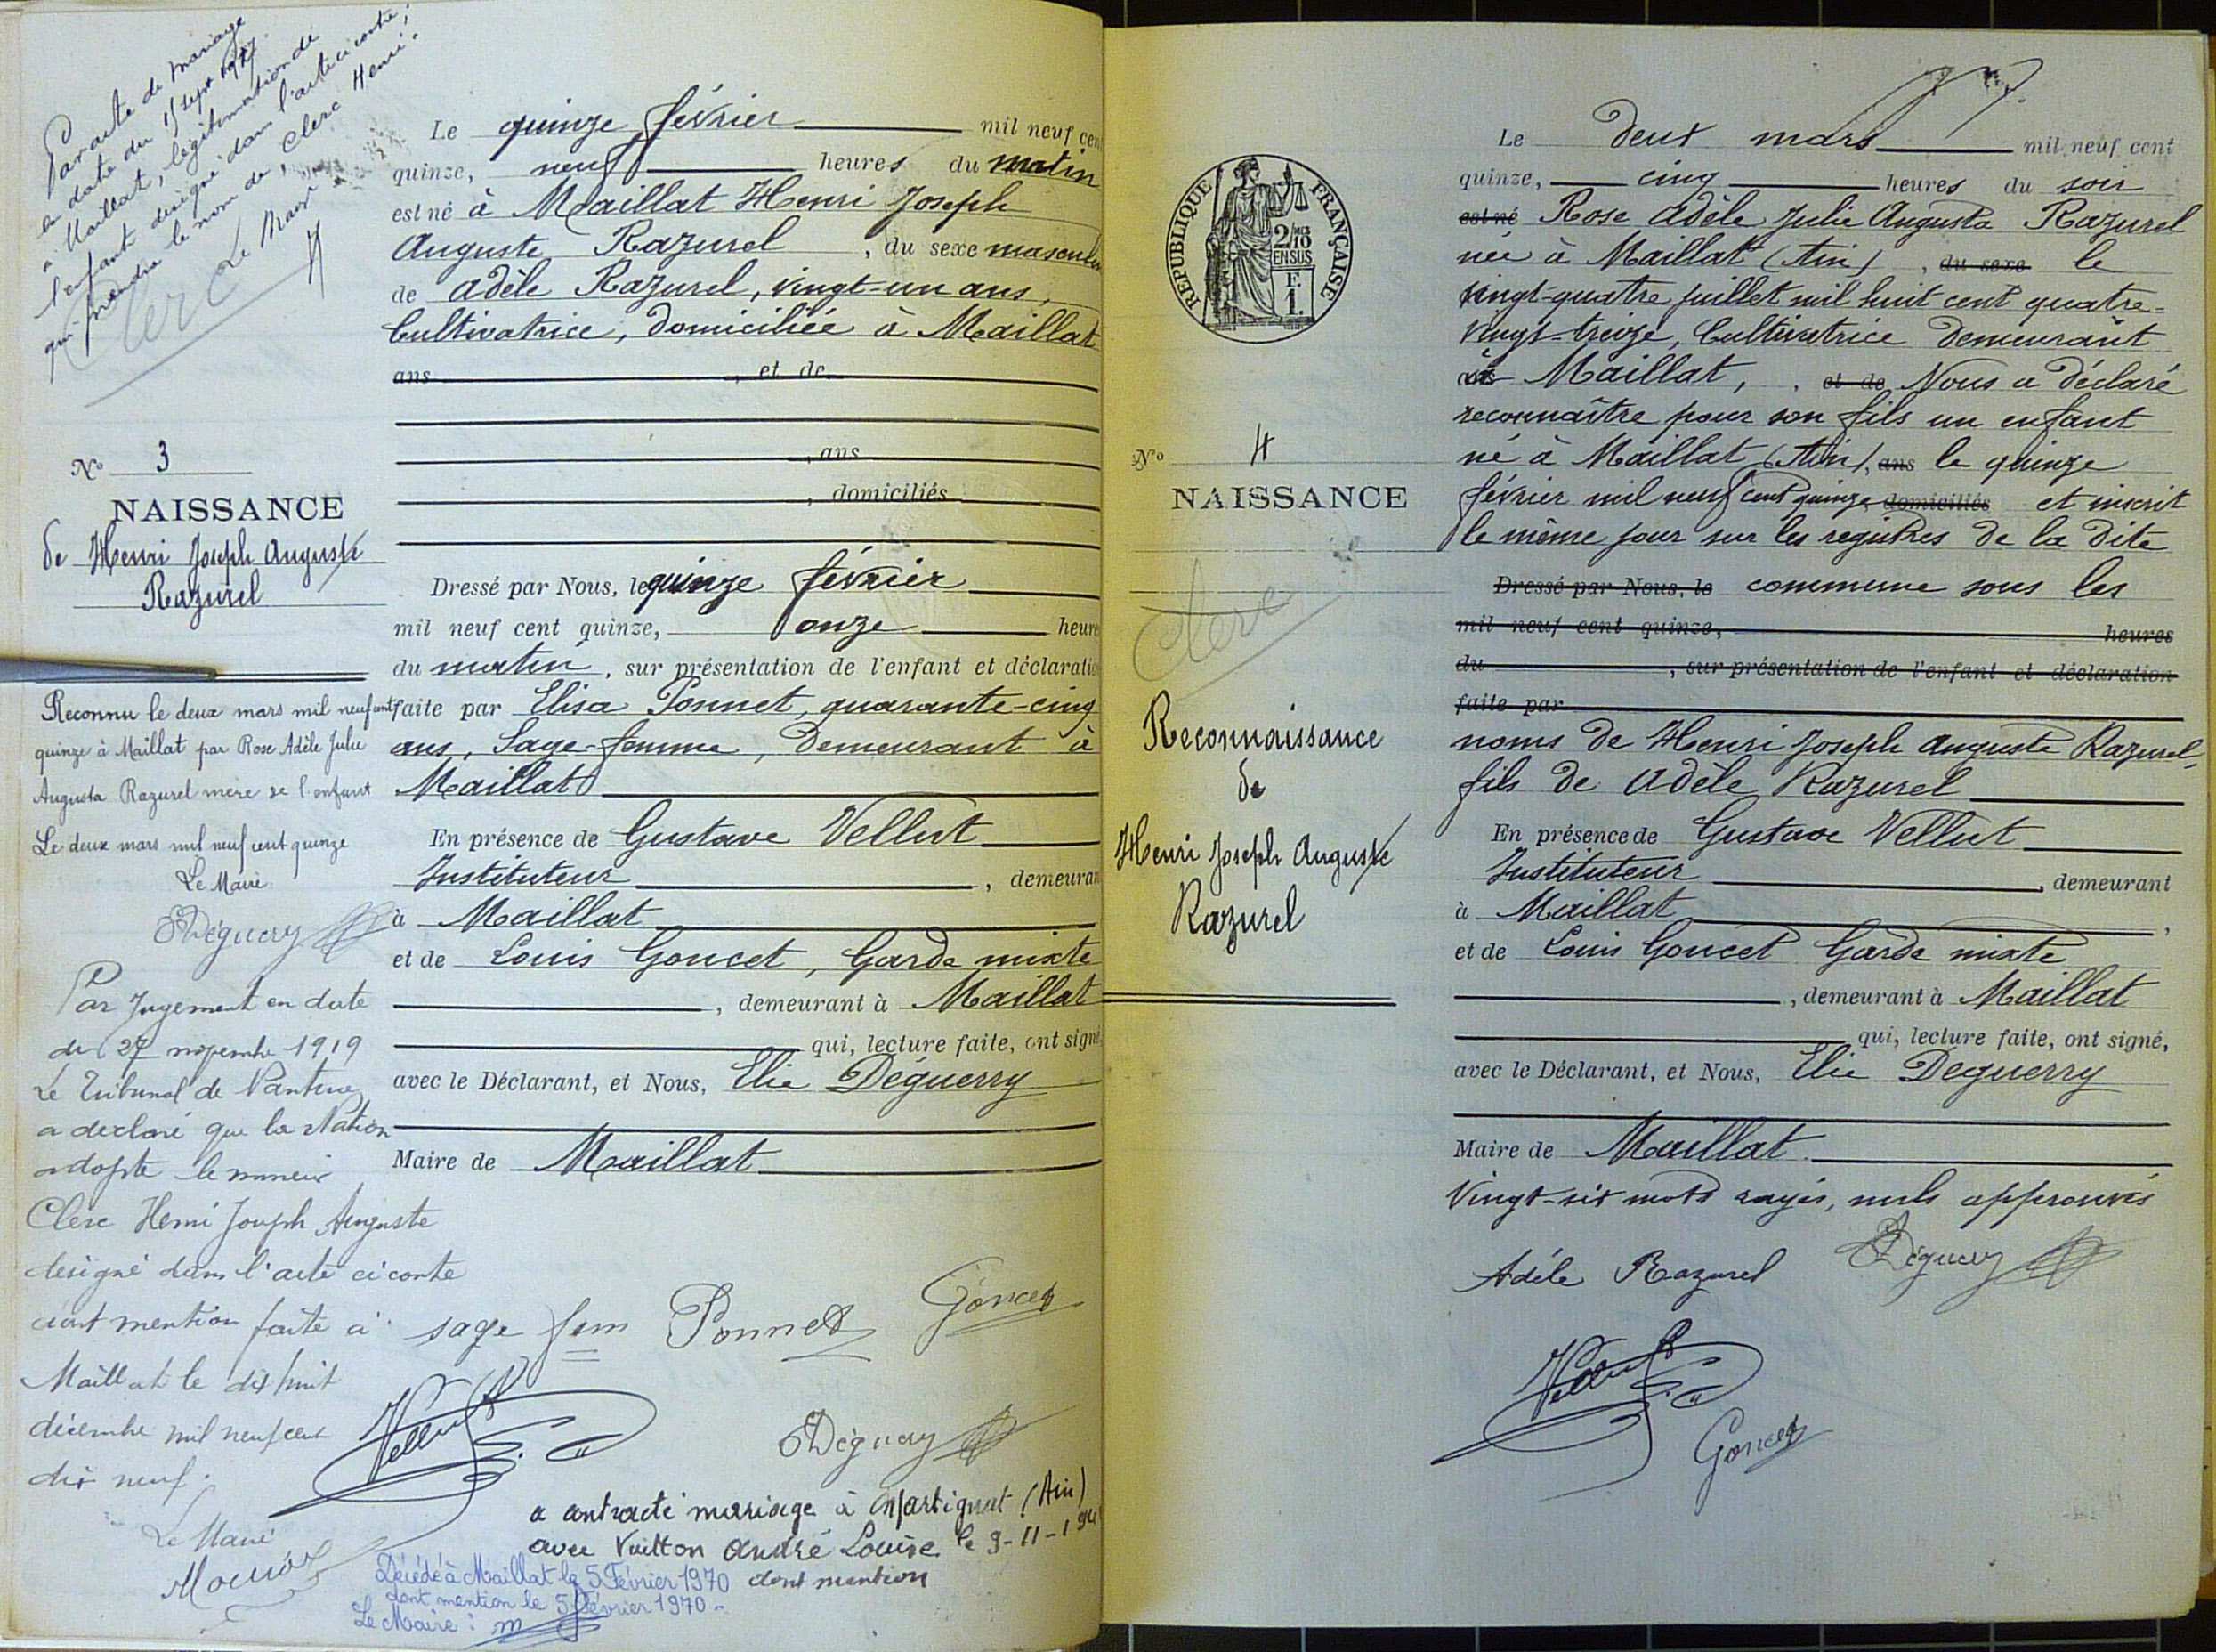 Par acte de mariage
en date du 15 sept 1917
à Maillat, légitimation de
l'enfant désigné dans l'acte ci contre,
qui prendra le nom de, Clerc Henri.
Le Maire
Clerc
Le quinze février mil neuf cen
quinze, neuf heures du matin
est né à Maillat Henri Joseph
Auguste Razurel, du sexe masculin
de Adèle Razurel, vingt-un ans,
Cultivatrice, domiciliée à Maillat
ans, et de
, ans
, domiciliés
No 3
NAISSANCE
de Henri Joseph Auguste
Razurel
Dressé par Nous, le quinze février
mil neuf cent quinze, onze heure
du matin, sur présentation de l'enfant et déclaratio
faite par Elisa Ponnet, quarante-cinq
ans, Sage-femme, demeurant à
Maillat
En présence de Gustave Vellut
Instituteur, demeuran
à Maillat
et de Louis Goncet, Garde mixte
, demeurant à Maillat
qui, lecture faite, ont signé
avec le Déclarant, et Nous, Elie Deguerry
Maire de Maillat
Reconnu le deux mars mil neuf cent
quinze à Maillat par Rose Adèle Julie
Augusta Razurel mère de l'enfant
Le deux mars mil neuf cent quinze
Le Maire
EDéguerry
Par Jugement en date
du 27 novembre 1919
Le Tribunal de Nantua
a déclaré que la Nation
adopte le mineur
Clerc Henri Joseph Auguste
désigné dans l'acte ci contre
dont mention faite à
Maillat le dix huit
décembre mil neuf cent
dix neuf.
Le Maire
sage fem Ponnet Goncet
Vellut
EDéguerry
a contracté mariage à Martignat (Ain)
avec Vuitton André Louise le 9-11-194
dont mention
Décédé à Maillat le 5 Février 1970
dont mention le 5 Février 1970 -
Le Maire :
RÉPUBLIQUE FRANÇAISE
2/10
EN SUS
F.
1.
No 4
NAISSANCE
Clerc
Reconnaissance
de
Henri Joseph Auguste
Razurel
Le deux mars mil neuf cent
quinze, cinq heures du soir
est né Rose Adèle Julie Augusta Razurel
née à Maillat (Ain), du sexe le
vingt-quatre juillet mil huit cent quatre-
vingt-treize, Cultivatrice demeurant
à Maillat, et de Nous a déclaré
reconnaître pour son fils un enfant
né à Maillat (Ain), ans le quinze
février mil neuf cent quinze, domiciliés et inscrit
le même jour sur les registres de la dite
Dressé par Nous, le commune sous les
mil neuf cent quinze, heures
du, sur présentation de l'enfant et déclaration
faite par
noms de Henri Joseph Auguste Razurel,
fils de Adèle Razurel
En présence de Gustave Vellut
Instituteur, demeurant
à Maillat,
et de Louis Goncet Garde mixte
, demeurant à Maillat
qui, lecture faite, ont signé,
avec le Déclarant, et Nous, Elie Deguerry
Maire de Maillat
Vingt-six mots rayés, nuls approuvés
Adèle Razurel EDéguerry
Vellut
Goncet